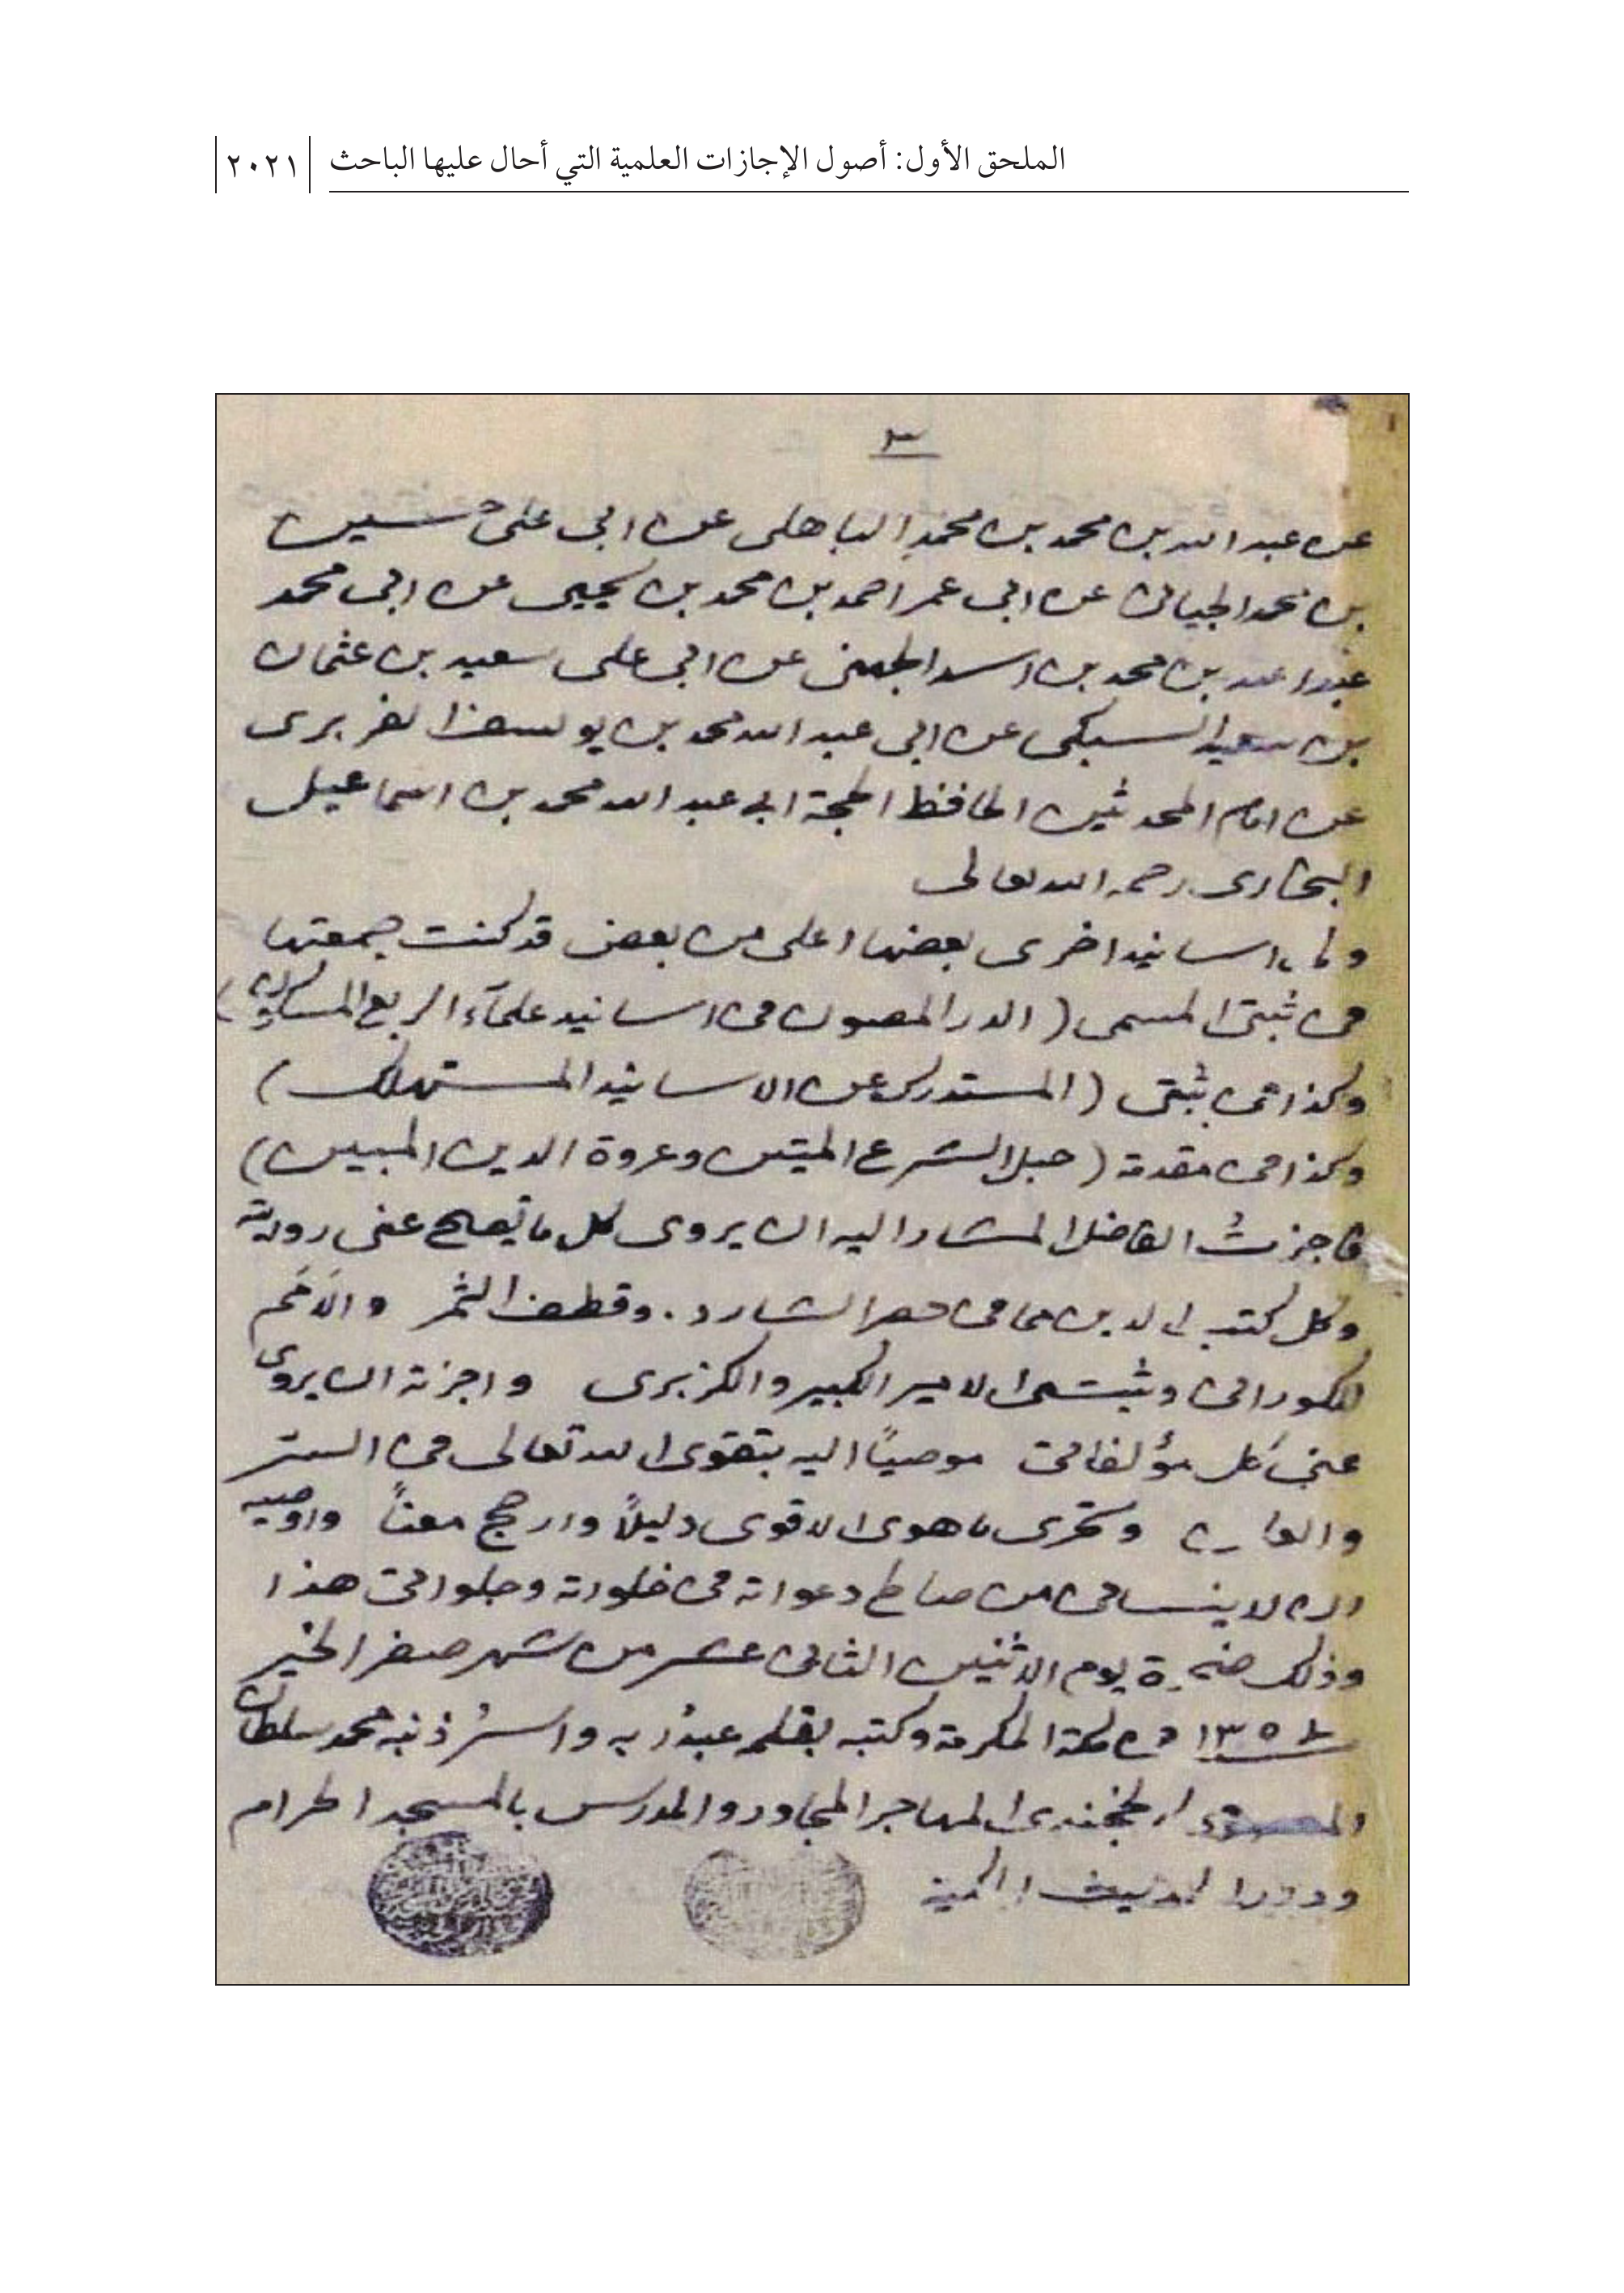 الملحق الأول: أصول الإجازات العلمية التي أحال عليها الباحث
٢٠٢١
٣
عن عبد الله بن محمد بن محمد الباهلى عن ابى على حسين
بن محمد الجيانى عن ابى عمر احمد بن محمد بن يحيى عن ابى محمد
عبد الله بن محمد بن اسد الجهنى عن ابى على سعيد بن عثمان
بن سعيد السبكى عن ابى عبد الله محمد بن يوسف الفربرى
عن امام المحدثين الحافظ الحجة ابى عبد الله محمد بن اسماعيل
البخارى رحمه الله تعالى
ولى اسانيد اخرى بعضها اعلى من بعض قد كنت جمعتها
فى ثبتى المسمى (الدر المصون فى اسانيد علمآء الربع المسكون)
وكذا فى ثبتى (المستدرك عن الاسانيد المستهلك)
وكذا فى مقدمة (حبل الشرع المتين وعروة الدين المبين)
فاجزت الفاضل المشار اليه ان يروى كل ما تصلح عنى روايته
وكل كتب الدين مما فى حصر الشارد. وقطف الثمر والاَمَم
للكورانى وثبتى الامير الكبير والكزبرى واجزته ان يروى
عنى كل مؤلفاتى موصيًا اليه بتقوى الله تعالى فى السر
والعلن وتحرى ما هو الاقوى دليلاً وارجح معنىً واوصيه
ان لا ينسانى من صالح دعواته فى خلواته وجلواته هذا
وذلك ضحوة يوم الاثنين الثانى عشر من شهر صفر الخير
١٣٥ فى مكة المكرمة وكتبه بقلمه عبد ربه واسير ذنبه محمد سلطان
المعصومى الخجندى المهاجر المجاور والمدرس بالمسجد الحرام
ودار الحديث المكية